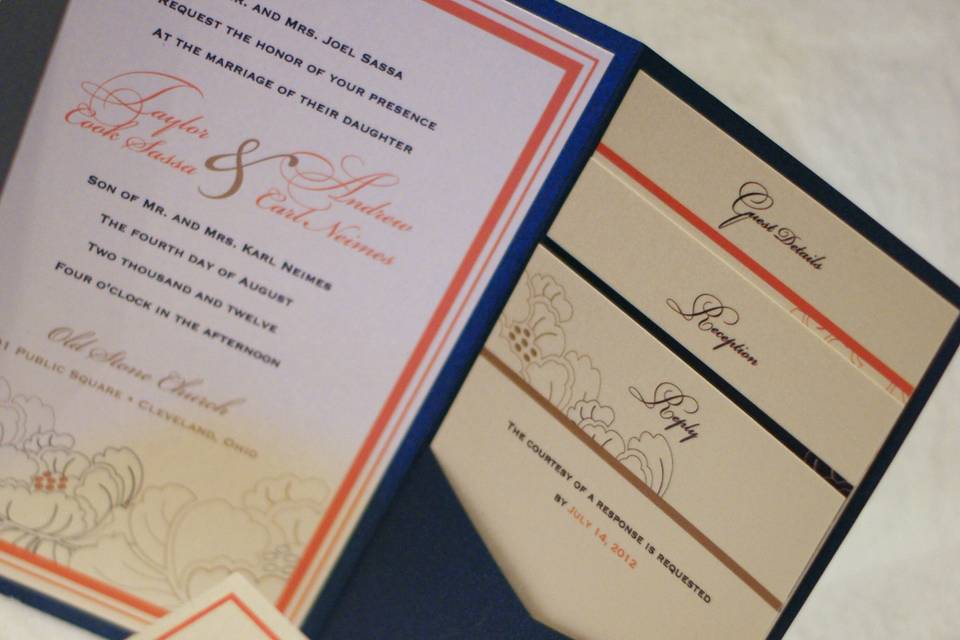 and Mrs. Joel Sassa
request the honor of your presence
at the marriage of their daughter
Taylor
Cook Sassa
&
Andrew
Carl Neimes
Son of Mr. and Mrs. Karl Neimes
The fourth day of August
two thousand and twelve
Four o'clock in the afternoon
Old Stone Church
Public Square • Cleveland, Ohio
Guest Details
Reception
Reply
The courtesy of a response is requested
by July 14, 2012